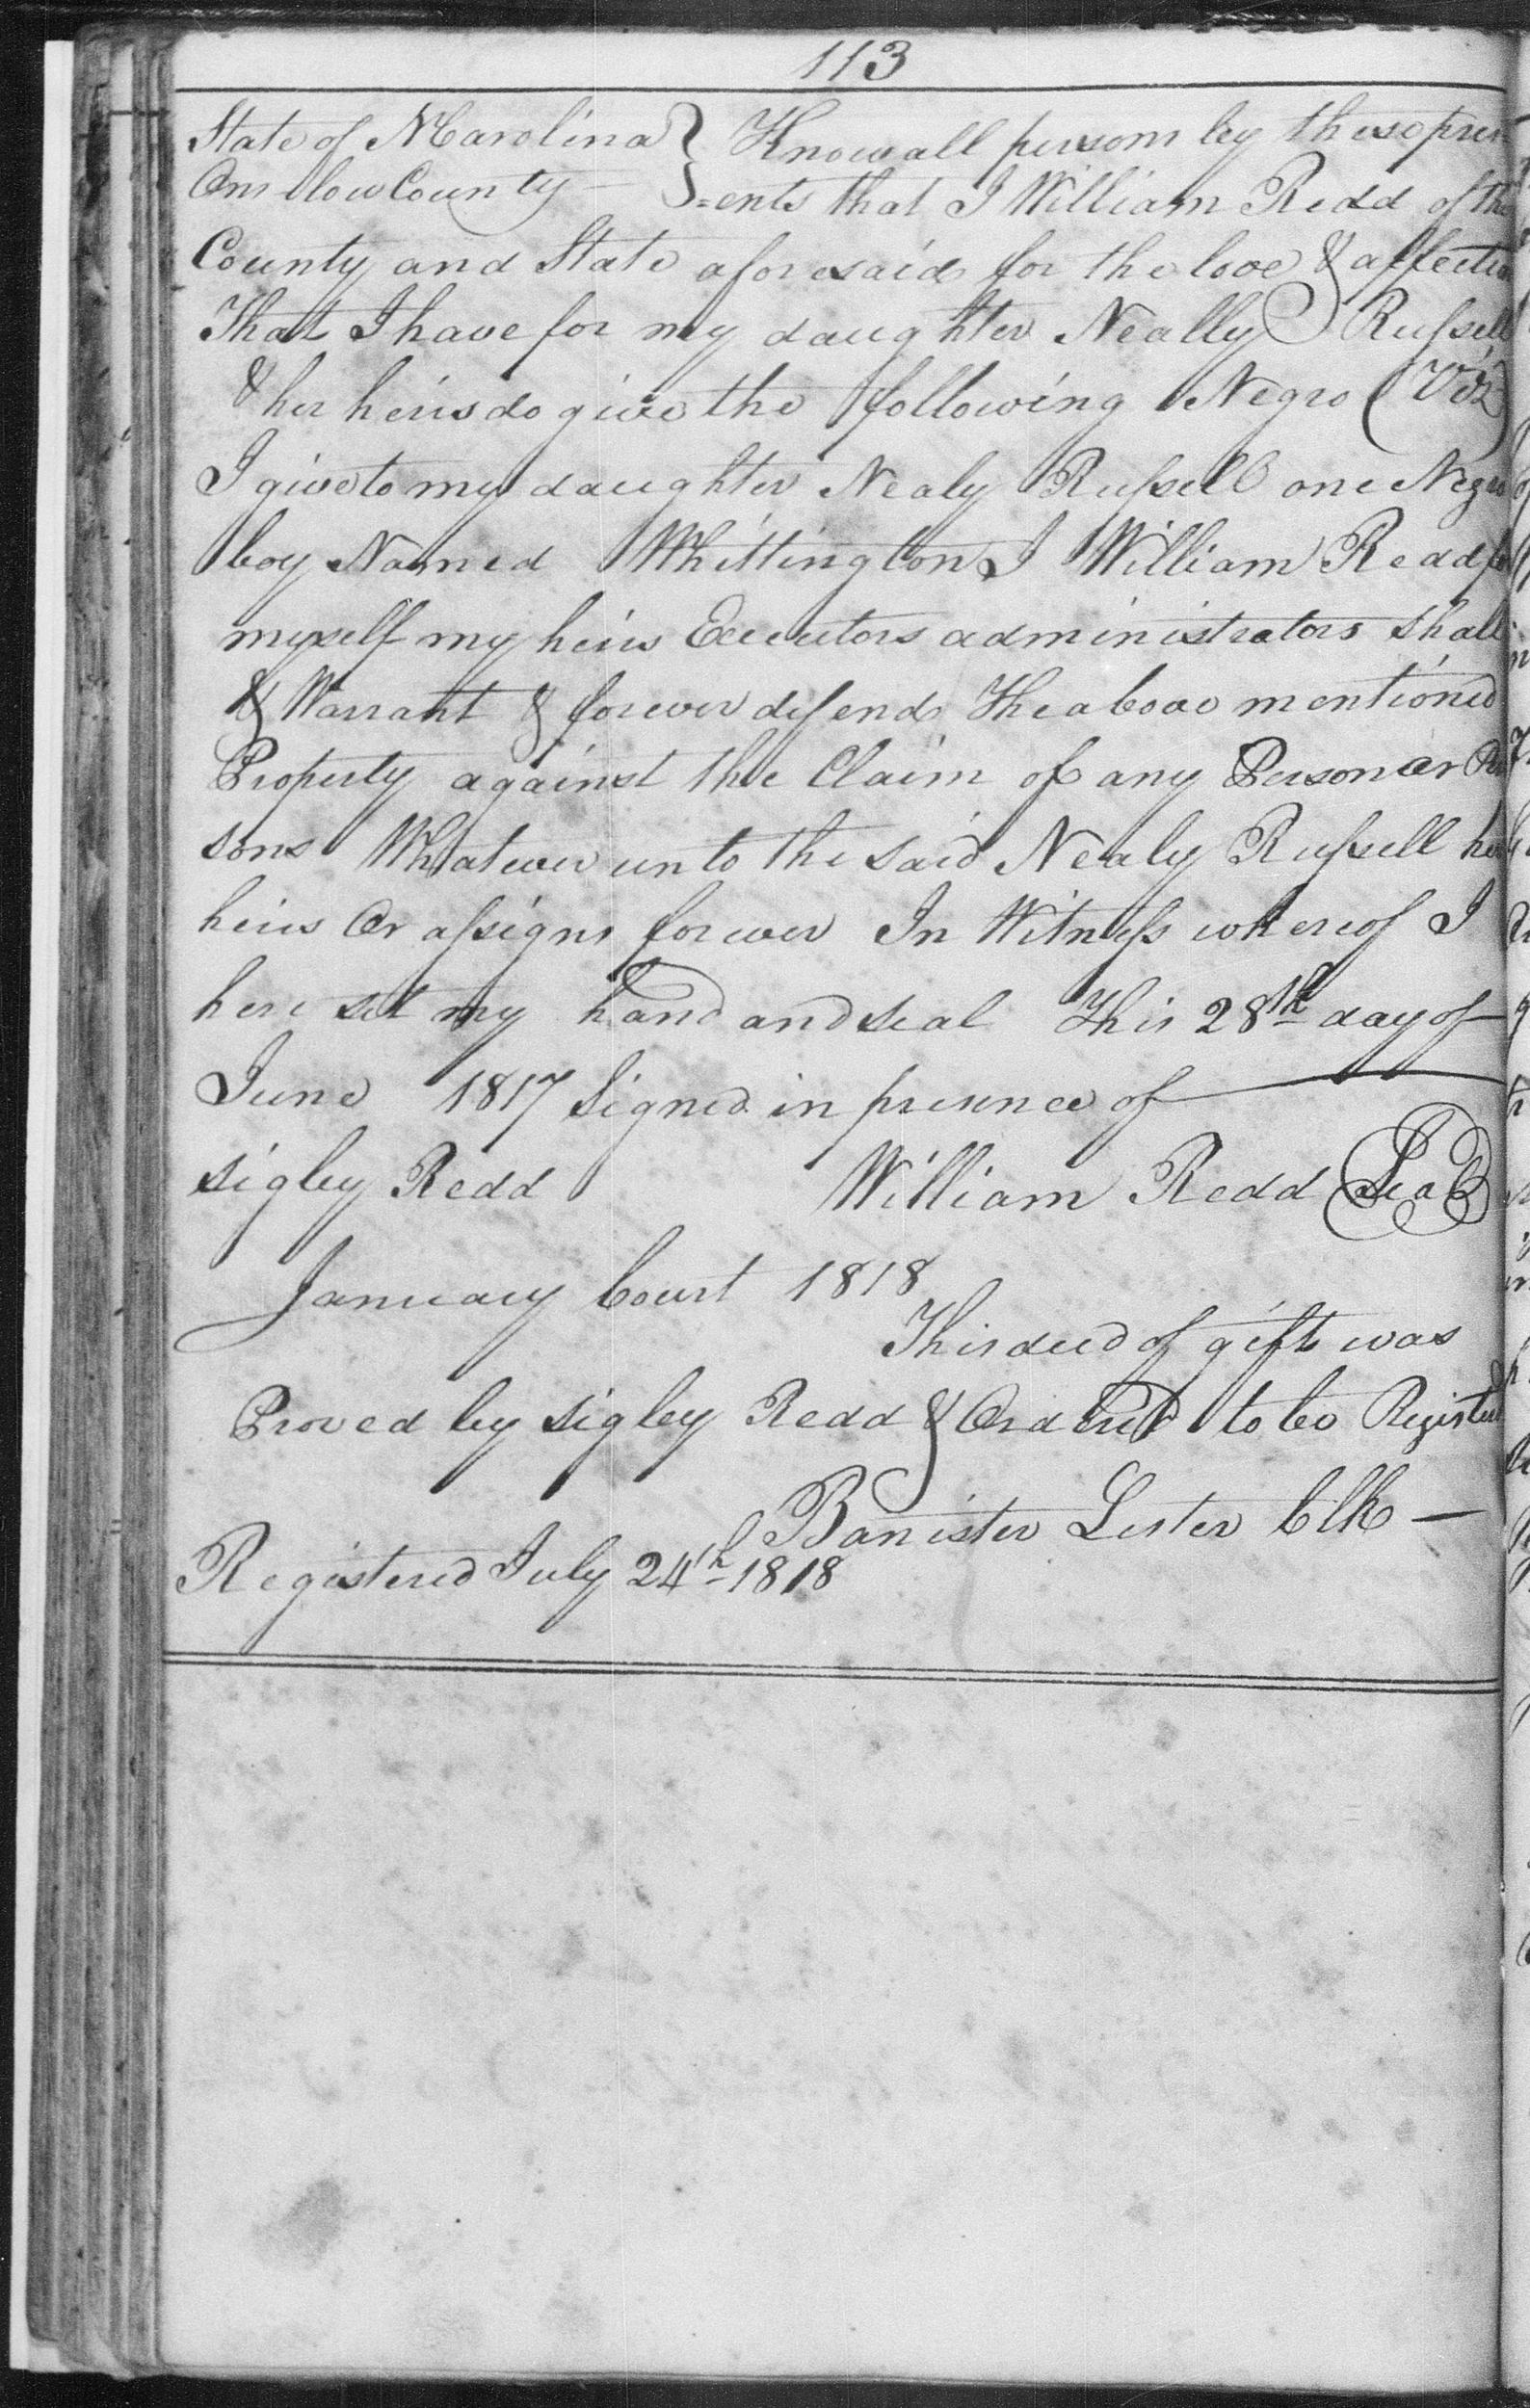 113
State of N Carolina } Know all persons by these pres
Onslow County - } =ents that I William Redd of the
County and State aforesaid for the love & affection
That I have for my daughter Neally Russell
& her heirs do give the following Negro (Viz)
I give to my daughter Nealy Russell one Negro
boy Named Whittington I William Redd for
myself my heirs Executors administrators shall
& Warrant & forever defend The above mentioned
Property against the Claim of any Person or Per
sons Whatever unto the said Nealy Russell her
heirs Or assigns forever In Witness whereof I
here set my hand and seal This 28th day of
June 1817 Signed in presence of
Sigley Redd William Redd Seal
January Court 1818
This deed of gift was
Proved by Sigley Redd & Ordered to be Registered
Banister Lester Clk -
Registered July 24th 1818